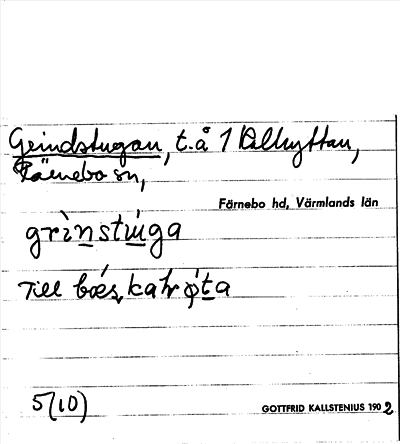 Grindstugan, t.å 1 Kalhyttan,
Färnebo sn,
Färnebo hd, Värmlands län
grìnstúga
Till
5/(10)
GOTTFRID KALLSTENIUS 1902